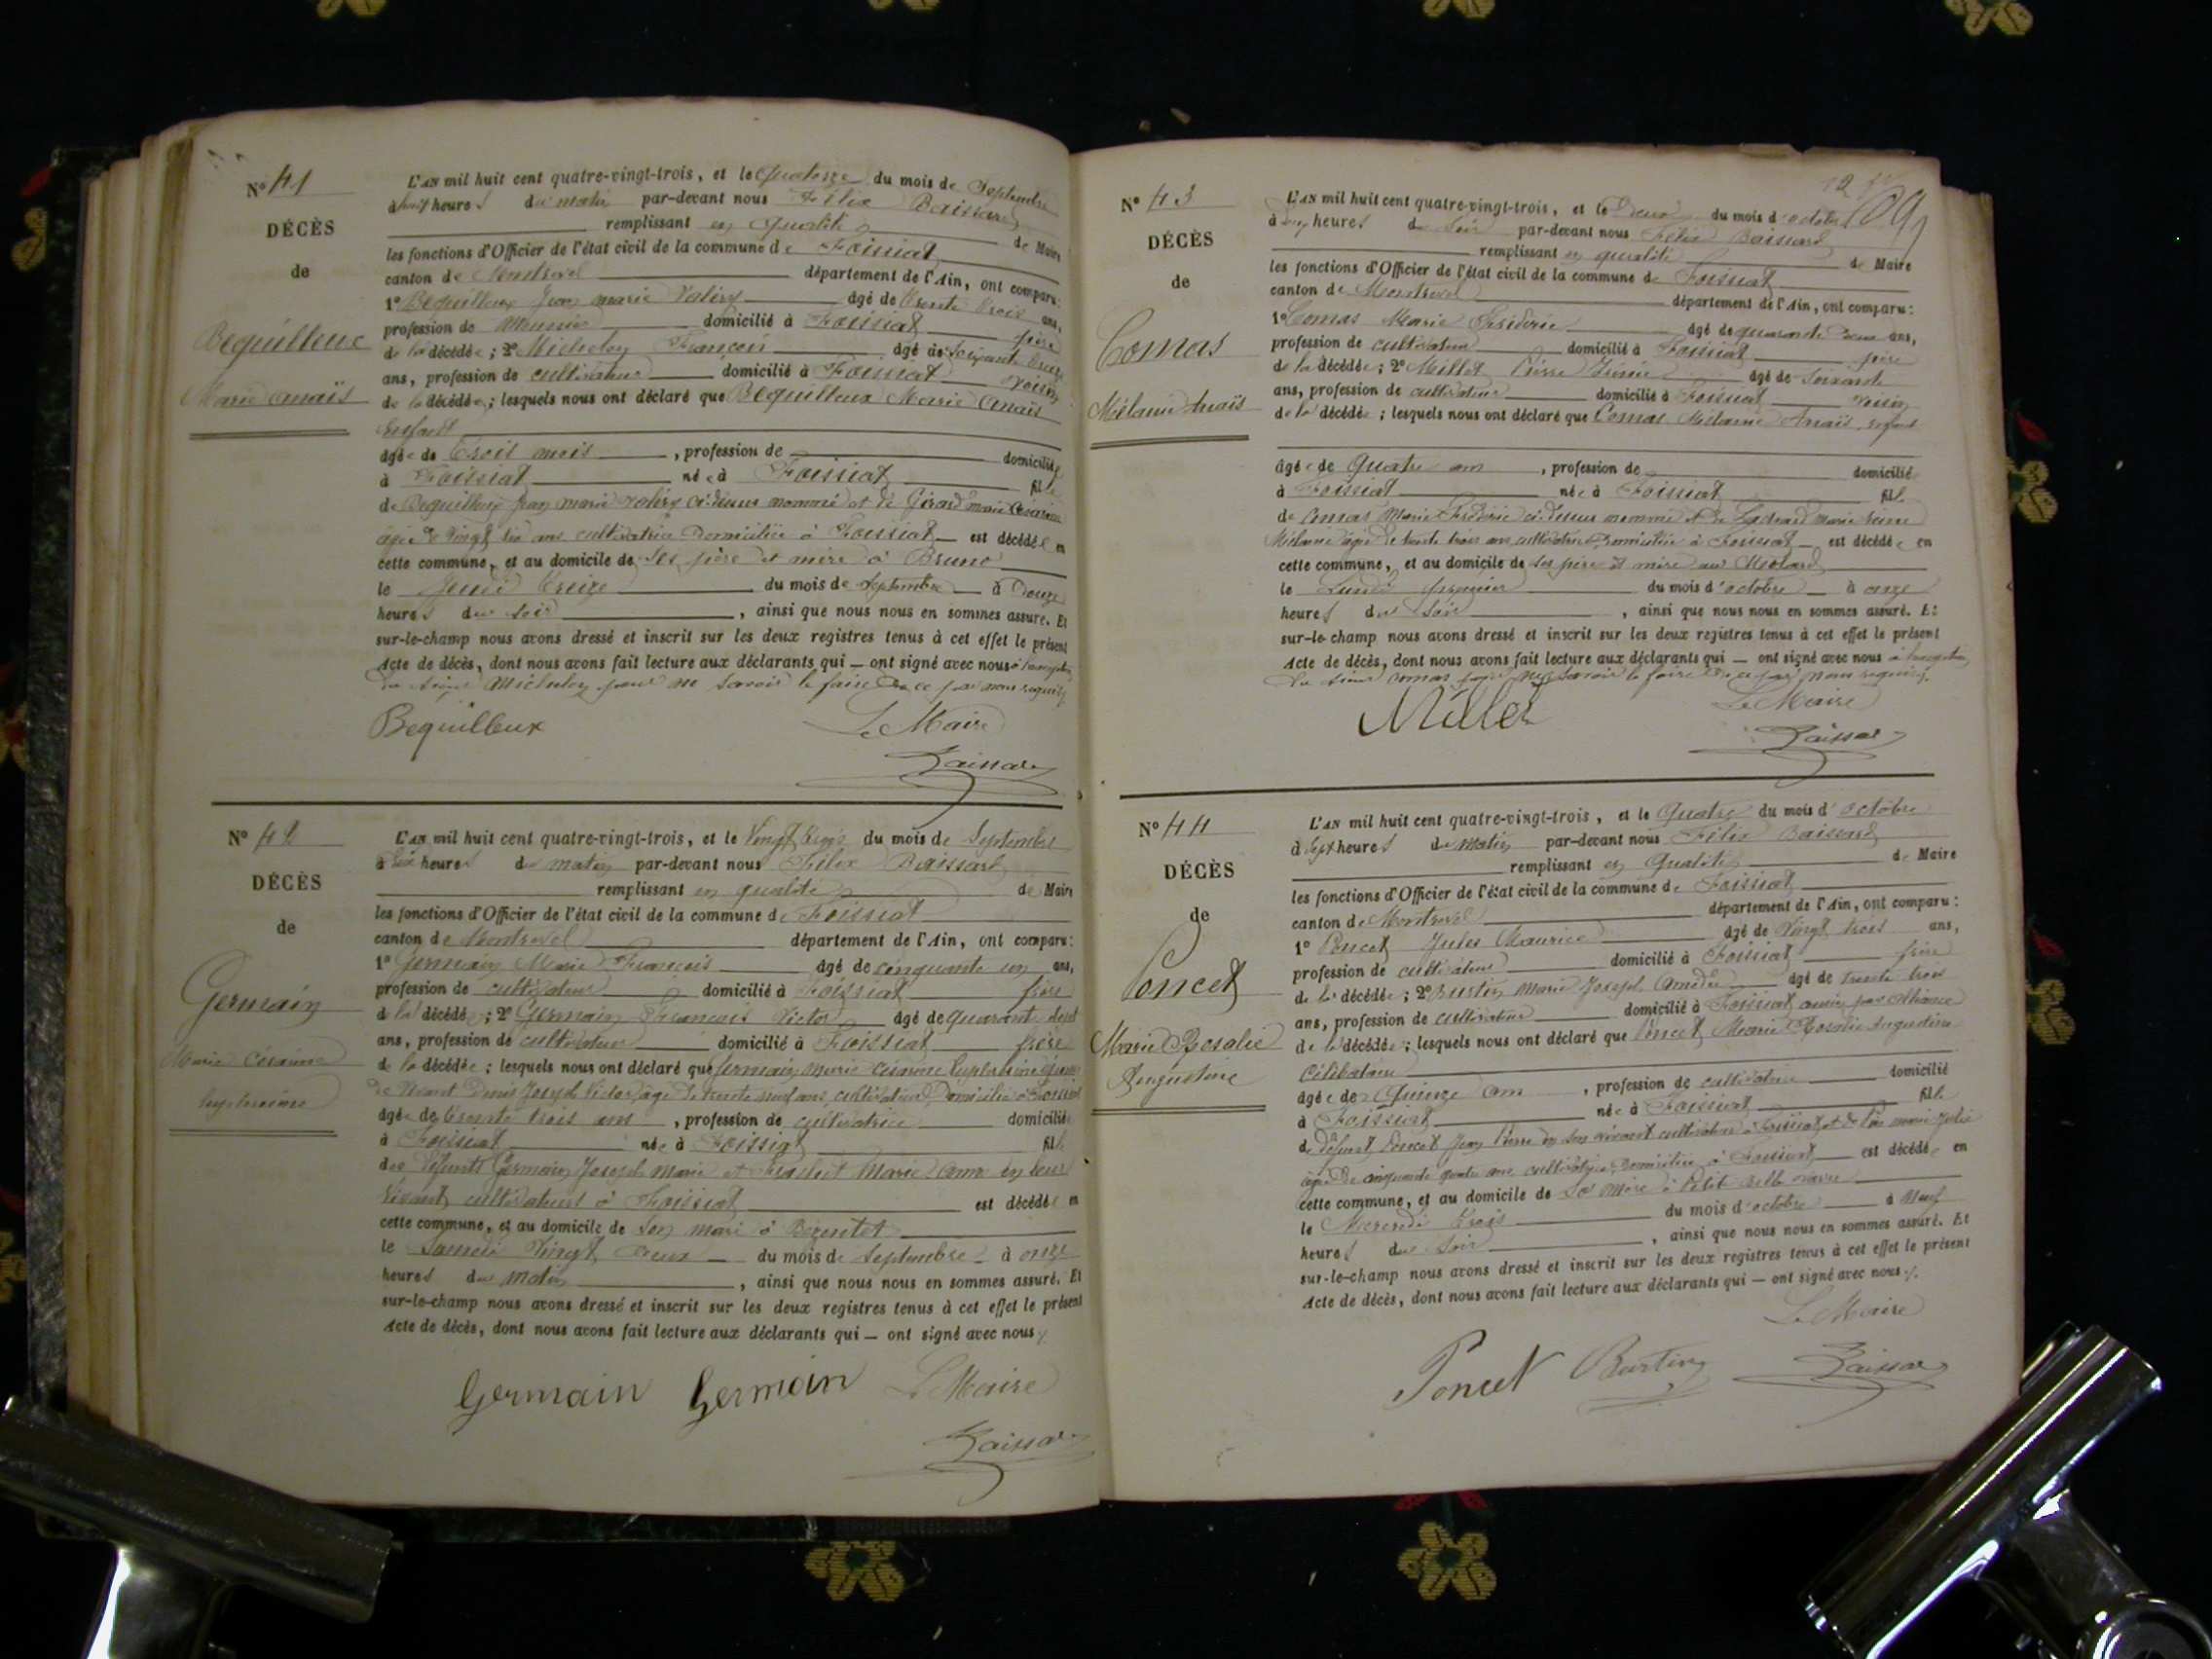 N° 41
DÉCÈS
de
Bequilleux
Marie Anaïs
L'AN mil huit cent quatre-vingt-trois, et le quatorze du mois de Septembre
à huit heures du matin par-devant nous Félix Baissard
remplissant en qualité de Maire
les fonctions d'Officier de l'état civil de la commune de Foissiat
canton de Montrevel département de l'Ain, ont comparu:
1° Bequilleux Jean marie Valéry âgé de trente trois ans,
profession de domicilié à Foissiat père
de la décédée; 2° Micheloy François âgé de soixante
ans, profession de cultivateur domicilié à Foissiat voisin
de la décédée; lesquels nous ont déclaré que Bequilleux Marie Anaïs
Enfant
âgée de trois mois, profession de domiciliée
à Foissiat née à Foissiat fille
de Bequilleux Jean marie Valéry ci-dessus nommé et de Girard marie
âgée de vingt six ans cultivatrice domiciliée à Foissiat est décédée en
cette commune, et au domicile de ses père et mère à Bruno
le Jeudi treize du mois de Septembre à
heures du soir, ainsi que nous nous en sommes assuré. Et
sur-le-champ nous avons dressé et inscrit sur les deux registres tenus à cet effet le présent
Acte de décès, dont nous avons fait lecture aux déclarants qui — ont signé avec nous à l'exception
du sieur Micheloy pour ne savoir le faire de ce par nous requis
Bequilleux Le Maire
Baissard
N° 42
DÉCÈS
de
Germain
Marie Césarine
Euphrosine
L'AN mil huit cent quatre-vingt-trois, et le Vingt trois du mois de Septembre
à six heures du matin par-devant nous Félix Baissard
remplissant en qualité de Maire
les fonctions d'Officier de l'état civil de la commune de Foissiat
canton de Montrevel département de l'Ain, ont comparu:
1° Germain Marie François âgé de cinquante un ans,
profession de cultivateur domicilié à Foissiat frère
de la décédée; 2° Germain François Victor âgé de quarante sept
ans, profession de cultivateur domicilié à Foissiat frère
de la décédée; lesquels nous ont déclaré que Germain marie césarine Euphrosine épouse
de Denis Joseph Victor âgé de trente neuf ans, cultivateur domicilié à Foissiat
âgée de trente trois ans, profession de cultivatrice domiciliée
à Foissiat née à Foissiat fille
des défunts Germain Joseph Marie et Marie Anne en leur
vivant cultivateurs à Foissiat est décédée en
cette commune, et au domicile de son mari à
le Samedi Vingt deux du mois de Septembre à onze
heures du matin, ainsi que nous nous en sommes assuré. Et
sur-le-champ nous avons dressé et inscrit sur les deux registres tenus à cet effet le présent
Acte de décès, dont nous avons fait lecture aux déclarants qui — ont signé avec nous
Germain Germain Le Maire
Baissard
109
N° 43
DÉCÈS
de
Comas
Mélanie Anaïs
L'AN mil huit cent quatre-vingt-trois, et le Deux du mois d'octobre
à heures du soir par-devant nous Félix Baissard
remplissant en qualité de Maire
les fonctions d'Officier de l'état civil de la commune de Foissiat
canton de Montrevel département de l'Ain, ont comparu:
1° Comas Marie Fréderic âgé de quarante deux ans,
profession de cultivateur domicilié à Foissiat père
de la décédée; 2° Millet Pierre âgé de soixante
ans, profession de cultivateur domicilié à Foissiat voisin
de la décédée; lesquels nous ont déclaré que Comas Mélanie Anaïs, enfant
âgée de Quatre ans, profession de domicilié
à Foissiat née à Foissiat fille
de Comas Marie Fréderic ci-dessus nommé et de marie
Mélanie âgée de trente trois ans cultivatrice domiciliée à Foissiat est décédée en
cette commune, et au domicile de ses père et mère au Molard
le Lundi premier du mois d'octobre à onze
heures du soir, ainsi que nous nous en sommes assuré. Et
sur-le-champ nous avons dressé et inscrit sur les deux registres tenus à cet effet le présent
Acte de décès, dont nous avons fait lecture aux déclarants qui — ont signé avec nous à l'exception
du sieur Comas pour ne savoir le faire de ce par nous requis.
Millet Le Maire
Baissard
N° 44
DÉCÈS
de
Poncet
Marie Rosalie
Augustine
L'AN mil huit cent quatre-vingt-trois, et le Quatre du mois d'octobre
à sept heures du matin par-devant nous Félix Baissard
remplissant en qualité de Maire
les fonctions d'Officier de l'état civil de la commune de Foissiat
canton de Montrevel département de l'Ain, ont comparu:
1° Poncet Jules Maurice âgé de Vingt trois ans,
profession de cultivateur domicilié à Foissiat frère
de la décédée; 2° Burtin Marie Joseph Amédée âgé de trente trois
ans, profession de cultivateur domicilié à Foissiat cousin par alliance
de la décédée; lesquels nous ont déclaré que Poncet Marie Rosalie Augustine
Célibataire
âgée de Quinze ans, profession de cultivatrice domicilié
à Foissiat née à Foissiat fille
de défunt Poncet Jean Pierre en son vivant cultivateur à Foissiat et de marie Julie
âgée de cinquante quatre ans cultivatrice domiciliée à Foissiat est décédée en
cette commune, et au domicile de sa mère à Petit
le Mercredi trois du mois d'octobre à Neuf
heures du soir, ainsi que nous nous en sommes assuré. Et
sur-le-champ nous avons dressé et inscrit sur les deux registres tenus à cet effet le présent
Acte de décès, dont nous avons fait lecture aux déclarants qui — ont signé avec nous
Le Maire
Poncet Burtin Baissard